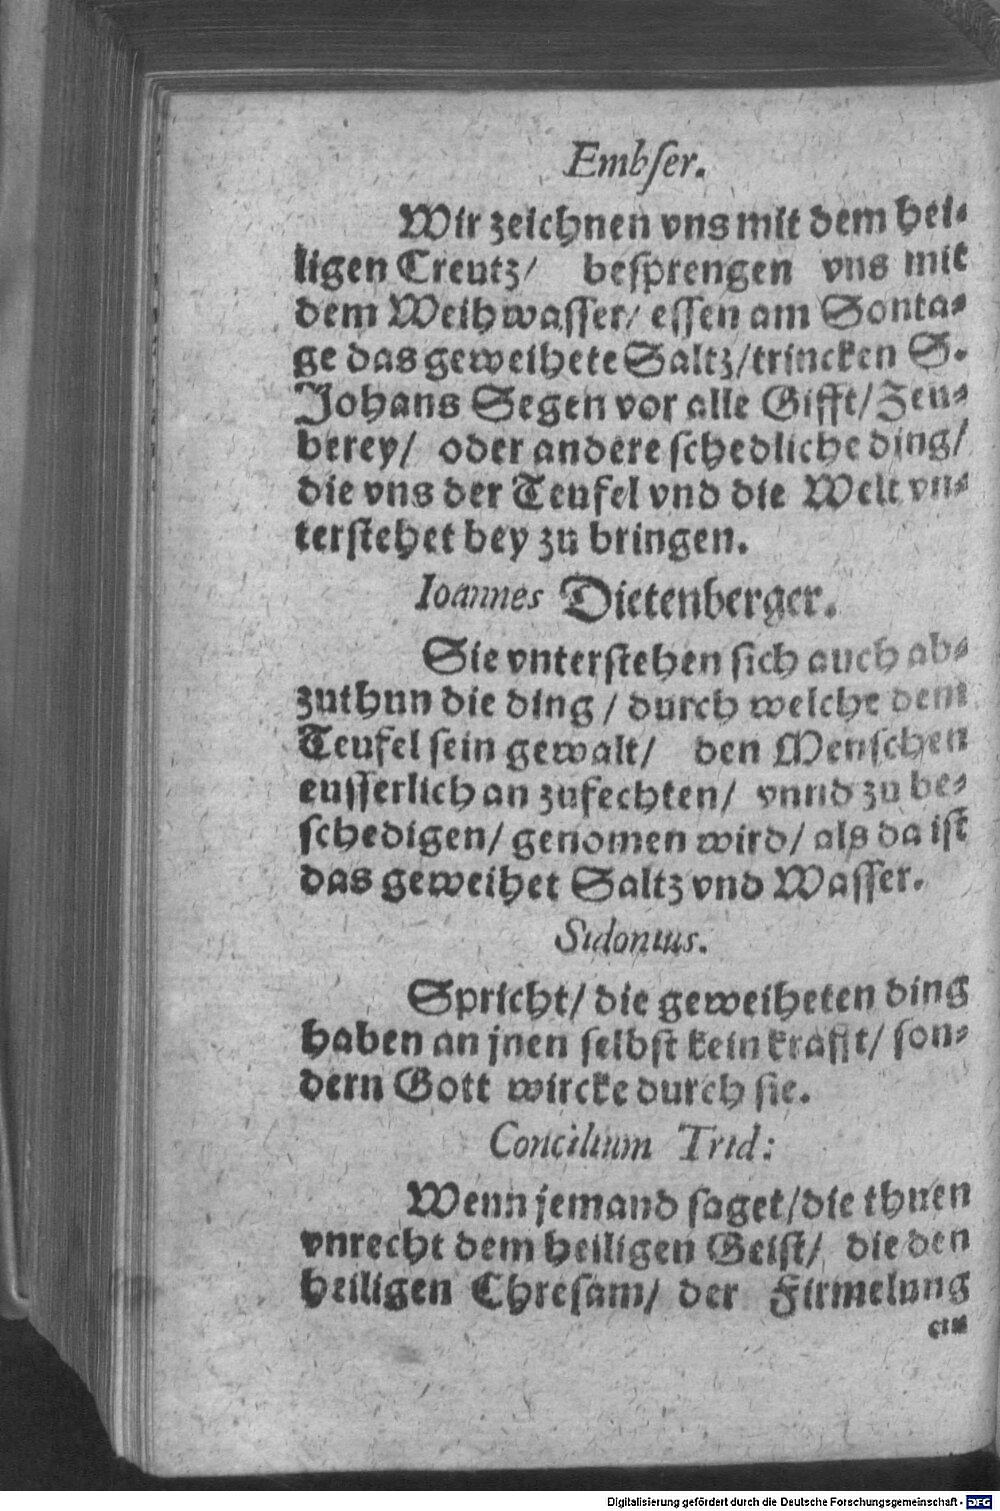 Embſer.
Wir zeichnen vns mit dem hei-
ligen Creutz/ besprengen vns mit
dem Weihwasser/ essen am Sonta-
ge das geweihete Saltz/trincken S.
Johans Segen vor alle Gifft/Zeu-
berey/ oder andere schedliche ding/
die vns der Teufel vnd die Welt vn-
terstehet bey zu bringen.
Ioannes Dietenberger.
Sie vnterstehen sich auch ab-
zuthun die ding / durch welche dem
Teufel sein gewalt/ den Menschen
eusserlich an zufechten/ vnnd zu be-
schedigen/ genomen wird/ als da ist
das geweihet Saltz vnd Wasser.
Sidonius.
Spricht/ die geweiheten ding
haben an jnen selbst kein krafft/ son-
dern Gott wircke durch sie.
Concilium Trid:
Wenn jemand saget/die thuen
vnrecht dem heiligen Geist/ die den
heiligen Chresam/ der Firmelung
Digitalisierung gefördert durch die Deutsche Forschungsgemeinschaft - DFG